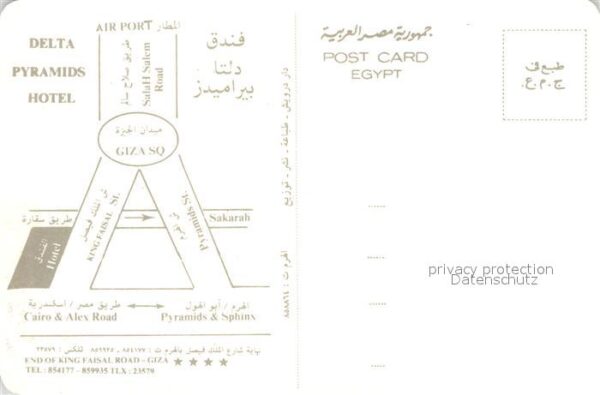 DELTA
PYRAMIDS
HOTEL
فندق
دلتا
بيراميدز
AIR PORT المطار
طريق صلاح سالم
SalaH Salem
Road
ميدان الجيزة
GIZA SQ
ش الملك فيصل
KING FAISAL St.
ش الهرم
Pyramids St.
طريق سقارة
Sakarah
الفندق
Hotel
طريق مصر / اسكندرية
Cairo & Alex Road
الهرم / أبو الهول
Pyramids & Sphinx
نهاية شارع الملك فيصل بالهرم ت : ٨٥٤١٧٧ - ٨٥٩٩٣٥ تلكس : ٢٣٥٧٩
END OF KING FAISAL ROAD - GIZA ★★★★
TEL : 854177 - 859935 TLX : 23579
دار درويش - طباعة - نشر - توزيع
الهرم ت : ٨٥٨٨٦٤
جمهورية مصر العربية
POST CARD
EGYPT
طبع فى
ج . م . ع .
privacy protection
Datenschutz